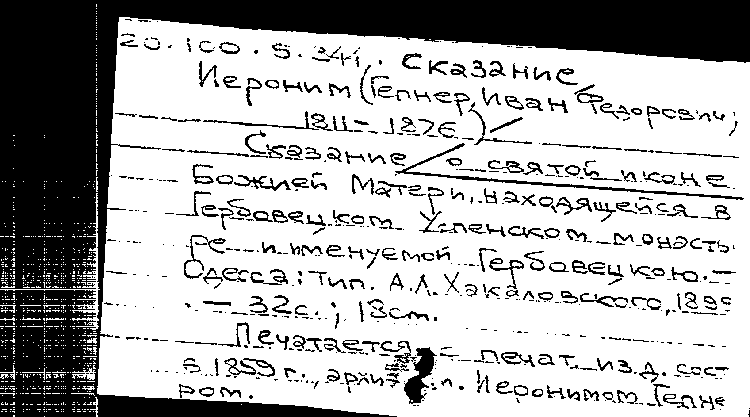 20.100.5.344. Сказание
Иероним (Гепнер, Иван Федорович;
1811 - 1876)
Сказание о святой иконе
Божией Матери, находящейся в
Гербовецком Успенском монасты
ре и именуемой Гербовецкою. -
Одесса: Тип. А.Л. Хакаловского, 189
. - 32с.; 18см.
Печатается с печат. изд. сост
в 1859 г., Иеронимом Гепне
ром.